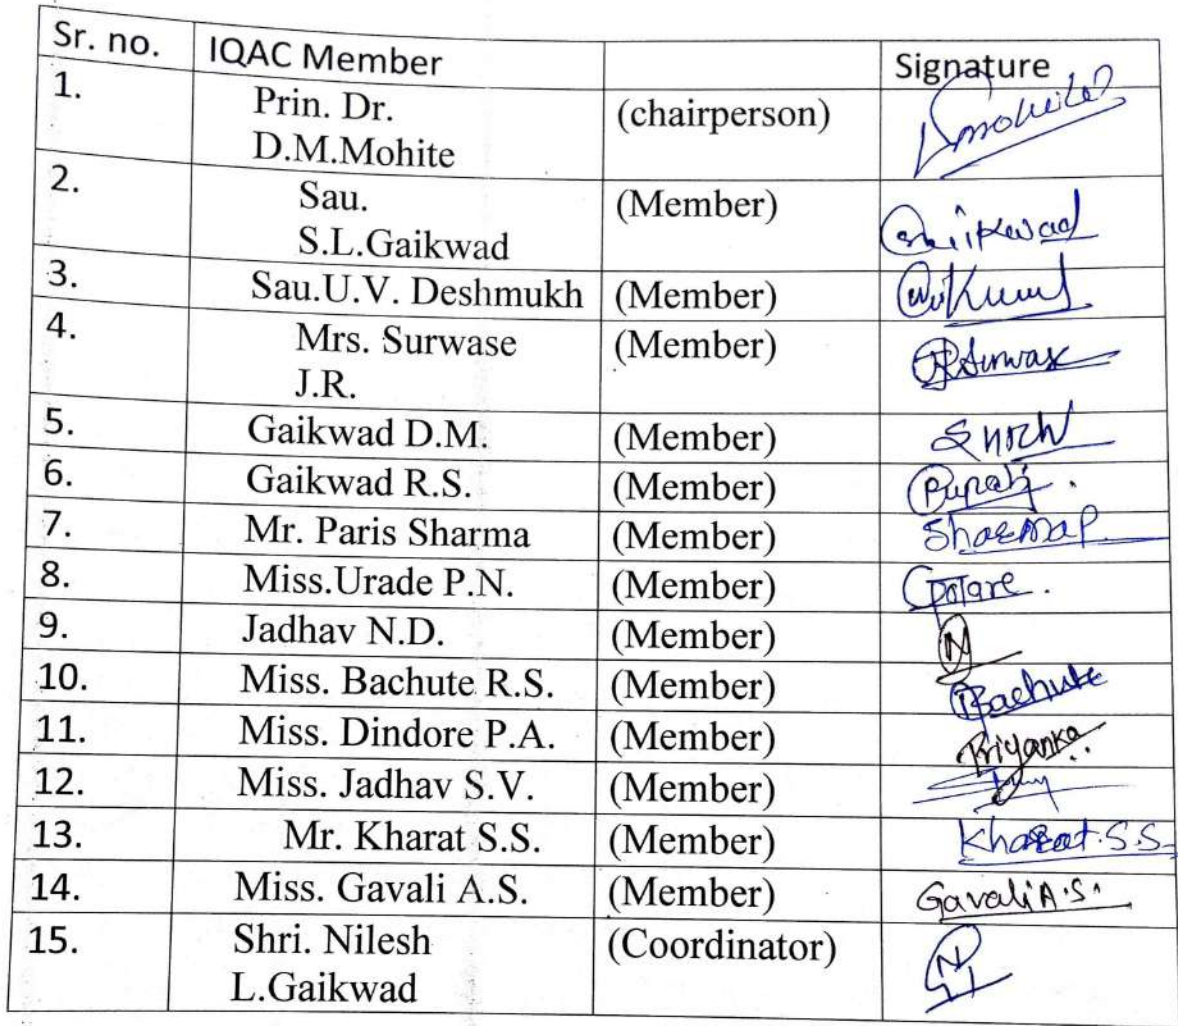 Sr. no. IQAC Member Signature
1. Prin. Dr. (chairperson) Dmohite
D.M.Mohite
2. Sau. (Member) Gaikwad
S.L.Gaikwad
3. Sau.U.V. Deshmukh (Member)
4. Mrs. Surwase (Member) Surwase
J.R.
5. Gaikwad D.M. (Member)
6. Gaikwad R.S. (Member)
7. Mr. Paris Sharma (Member) Sharma P.
8. Miss.Urade P.N. (Member)
9. Jadhav N.D. (Member) N
10. Miss. Bachute R.S. (Member) Bachute
11. Miss. Dindore P.A. (Member) Priyanka.
12. Miss. Jadhav S.V. (Member)
13. Mr. Kharat S.S. (Member) Kharat.S.S.
14. Miss. Gavali A.S. (Member) Gavali A.S.
15. Shri. Nilesh (Coordinator)
L.Gaikwad